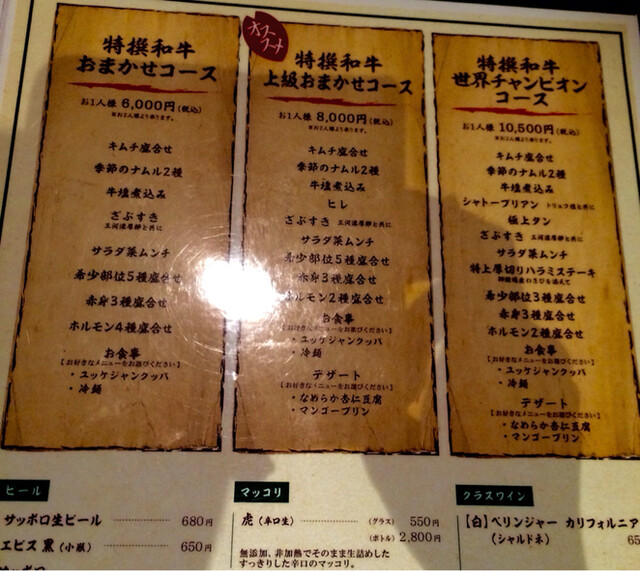 特撰和牛
おまかせコース
お1人様 6,000円(税込)
※お2人様より承ります。
キムチ盛合せ
季節のナムル2種
牛塩煮込み
ざぶすき 三河濃厚卵と共に
サラダ菜ムンチ
希少部位5種盛合せ
赤身3種盛合せ
ホルモン4種盛合せ
お食事
【お好きなメニューをお選びください】
・ユッケジャンクッパ
・冷麺
オススメ
特撰和牛
上級おまかせコース
お1人様 8,000円(税込)
※お2人様より承ります。
キムチ盛合せ
季節のナムル2種
牛塩煮込み
ヒレ
ざぶすき 三河濃厚卵と共に
サラダ菜ムンチ
希少部位5種盛合せ
赤身3種盛合せ
ホルモン2種盛合せ
お食事
【お好きなメニューをお選びください】
・ユッケジャンクッパ
・冷麺
デザート
【お好きなメニューをお選びください】
・なめらか杏仁豆腐
・マンゴープリン
特撰和牛
世界チャンピオン
コース
お1人様 10,500円(税込)
※お2人様より承ります。
キムチ盛合せ
季節のナムル2種
牛塩煮込み
シャトーブリアン トリュフ塩と共に
極上タン
ざぶすき 三河濃厚卵と共に
サラダ菜ムンチ
特上厚切りハラミステーキ
御殿場産わさびを添えて
希少部位3種盛合せ
赤身3種盛合せ
ホルモン2種盛合せ
お食事
【お好きなメニューをお選びください】
・ユッケジャンクッパ
・冷麺
デザート
【お好きなメニューをお選びください】
・なめらか杏仁豆腐
・マンゴープリン
ビール
サッポロ生ビール 680円
エビス 黒(小瓶) 650円
マッコリ
虎(辛口生) (グラス) 550円
(ボトル) 2,800円
無添加、非加熱でそのまま生詰めした
すっきりした辛口のマッコリ。
グラスワイン
【白】ベリンジャー カリフォルニア
(シャルドネ) 65